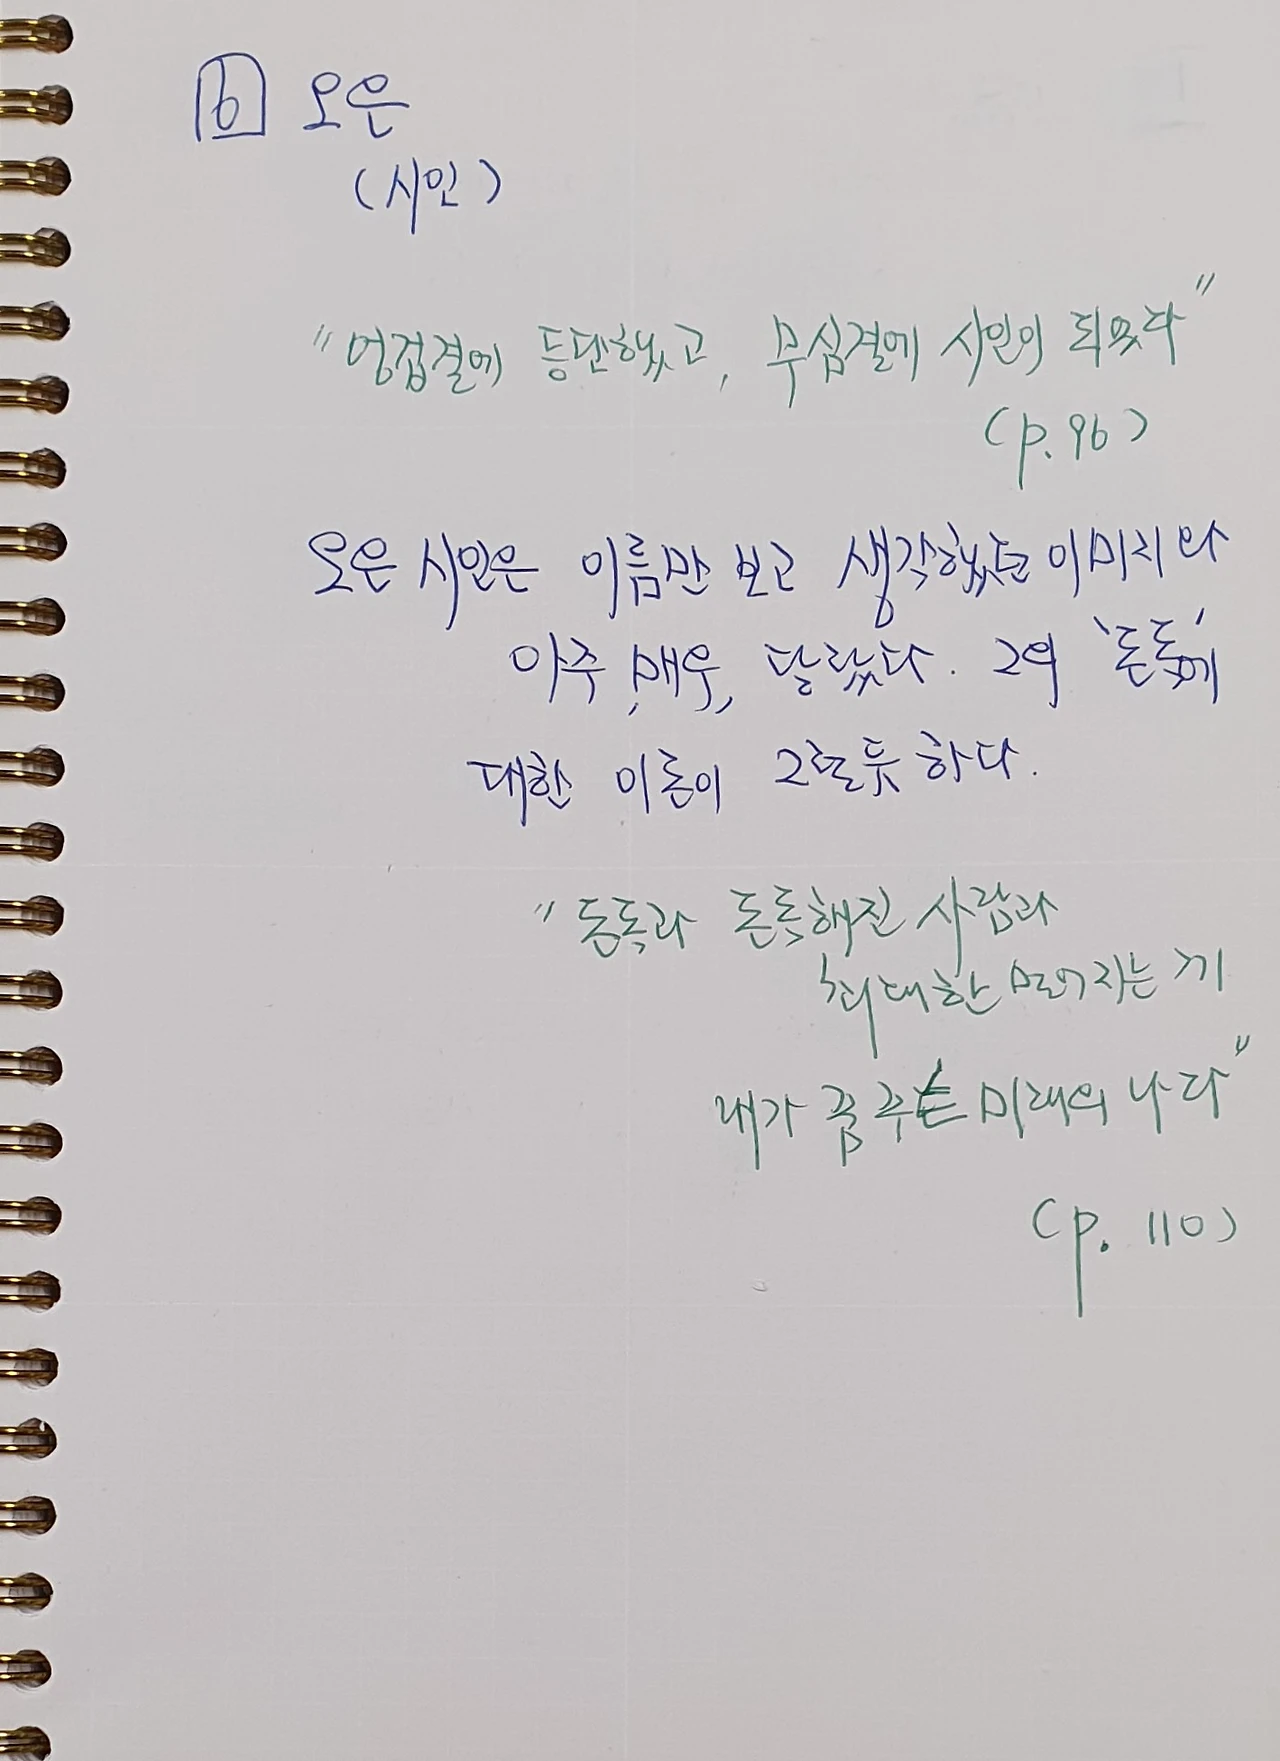 6 오은
(시인)
"엉겁결에 등단했고, 무심결에 시인이 되었다"
(p.96)
오은 시인은 이름만 보고 생각했던 이미지와
아주, 매우, 달랐다. 그의 '든든'에
대한 이론이 그럴듯 하다.
"든든과 든든해진 사람과
최대한 멀어지는 게
내가 꿈꾸는 미래의 나다"
(p. 110)